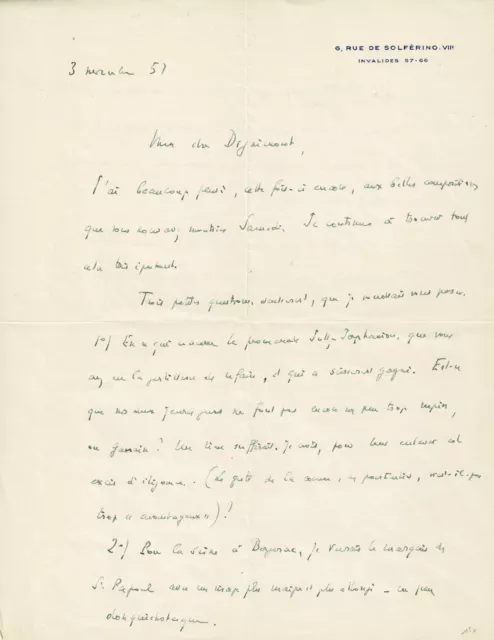 6, RUE DE SOLFÉRINO. VIIᵉ
INVALIDES 57-66
3 novembre 57
Mon cher Dignimont,
J'ai beaucoup pensé, cette fois-ci encore, aux belles compositions
que vous nous avez montrées Samedi. Je continue à trouver tout
cela très épatant.
Trois petites questions, seulement, que je voudrais vous poser.
1°) En ce qui concerne la promenade Jallez-Jerphanion, que vous
avez eu la gentillesse de refaire, et qui a sûrement gagné. Est-ce
que nos deux jeunes gens ne font pas encore un peu trop
ou ? Un rien suffirait, je crois, pour leur enlever cet
excès d'élégance. (Le geste de la canne, en particulier, n'est-il pas
trop) ?
2°) Pour la scène à , je verrais le marquis de
St Papoul avec un visage plus maigre et plus allongé - un peu
donquichottesque.